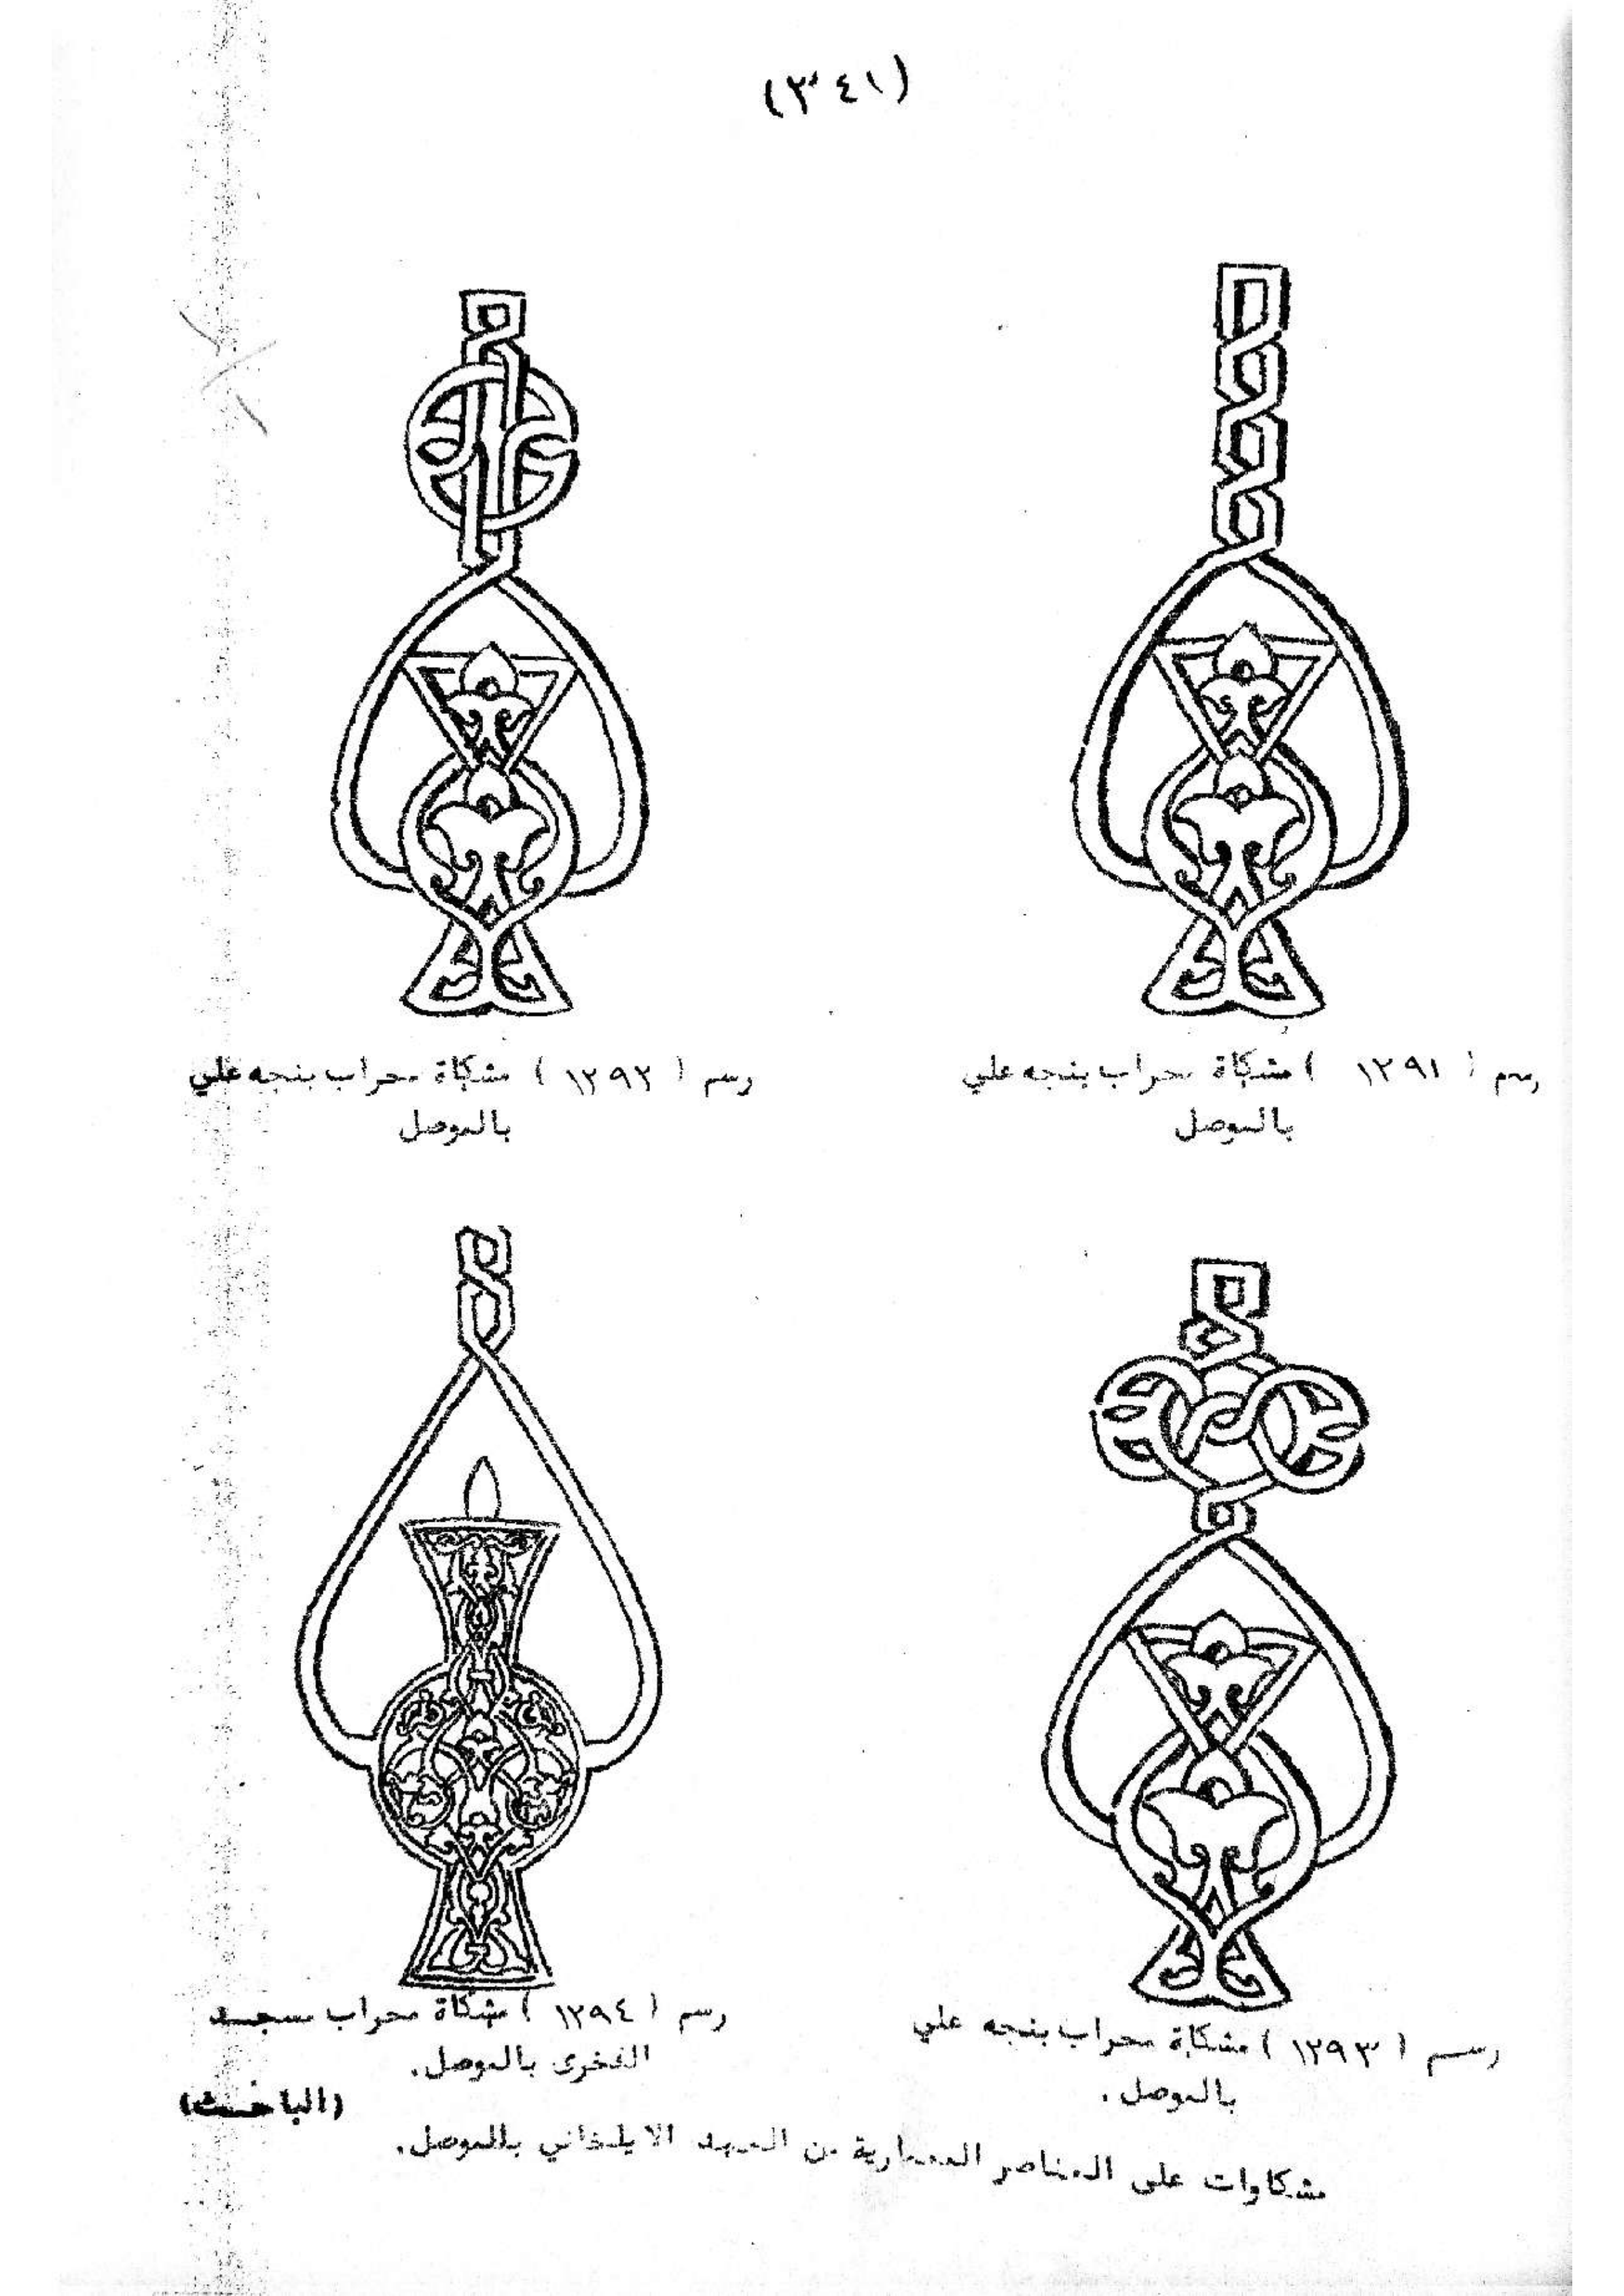 (٣٤١)
رسم ( ١٢٩١ ) مشكاة محراب بنجه علي
بالموصل
رسم ( ١٢٩٢ ) مشكاة محراب بنجه علي
بالموصل
رسم ( ١٢٩٣ ) مشكاة محراب بنجه علي
بالموصل .
رسم ( ١٢٩٤ ) مشكاة محراب مسجد
الفخرى بالموصل.
(الباحث)
مشكاوات على العناصر المعمارية من العهد الايلخاني بالموصل.